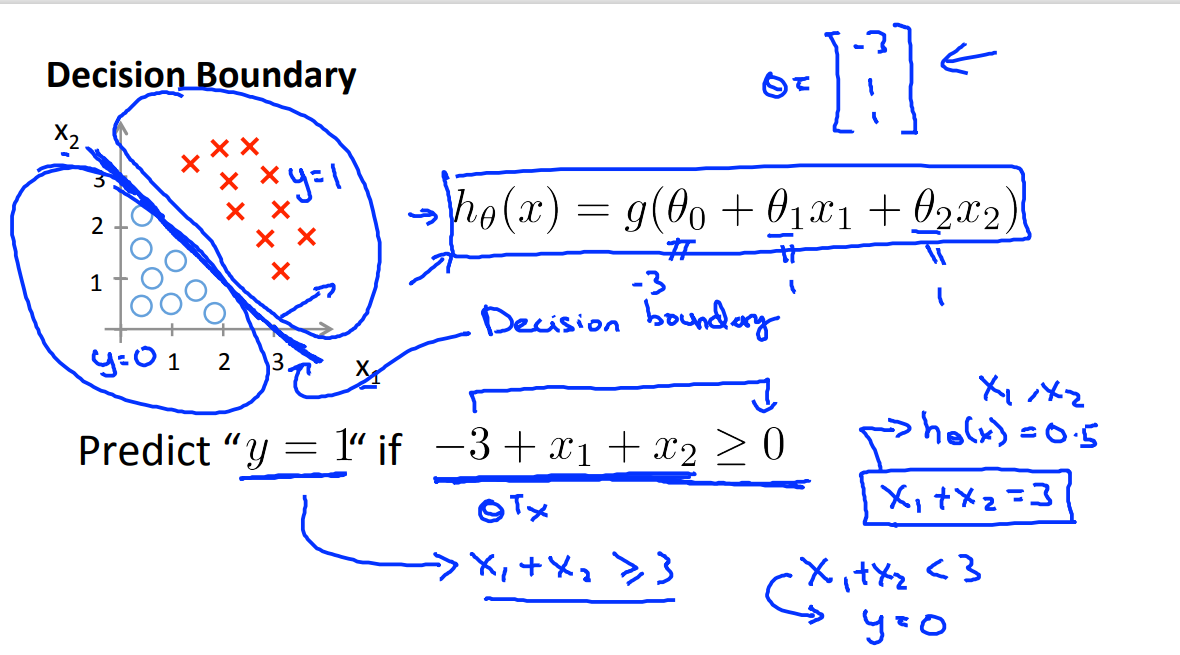 Decision Boundary
θ = [-3 1 1]
x₂
3
2
1
y=1
y=0
1 2 3
x₁
h_θ(x) = g(θ₀ + θ₁x₁ + θ₂x₂)
-3 1 1
Decision boundary
Predict “y = 1“ if −3 + x₁ + x₂ ≥ 0
θᵀx
x₁ + x₂ ≥ 3
x₁, x₂
h_θ(x) = 0.5
x₁ + x₂ = 3
x₁ + x₂ < 3
y = 0